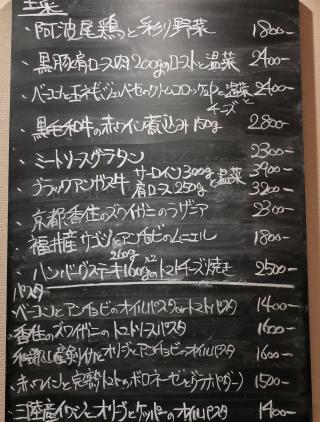 主菜
・阿波尾鶏っと彩り野菜 1800-
・黒豚肩ロース肉200gのローストと温菜 2400-
・ベーコンと玉ネギ、ジェノベーゼのクリームコロッケと温菜と 2400-
チーズ
・黒毛和牛の赤ワイン煮込み150g 2800-
・ミートソースグラタン 2300-
・ブラックアンガス牛 サーロイン300g と温菜 3900-
肩ロース250g 3200-
・京都香住のズワイガニのラザニア 2300-
・福井産サゴシとアンチョビのムニエル 1800-
・ハンバーグステーキ160g×2のトマトチーズ焼き 2500-
260g
パスタ
・ベーコンとアンチョビのオイルパスタorトマトパスタ 1400-
・香住のズワイガニのトマトソースパスタ 1600-
和歌山産 オリーブとアンチョビのオイルパスタ 1600-
・赤ワインと完熟トマトのボロネーゼ 1500-
・三陸産イワシとオリーブとケッパーのオイルパスタ 1400-